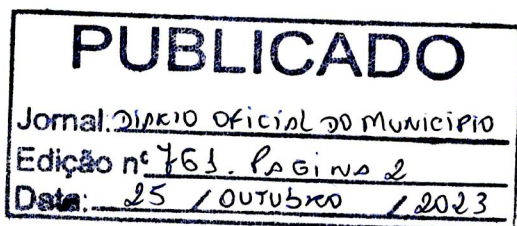 PUBLICADO
Jornal: DIÁRIO OFICIAL DO MUNICÍPIO
Edição nº 761. PAGINA 2
Data: 25 / OUTUBRO / 2023